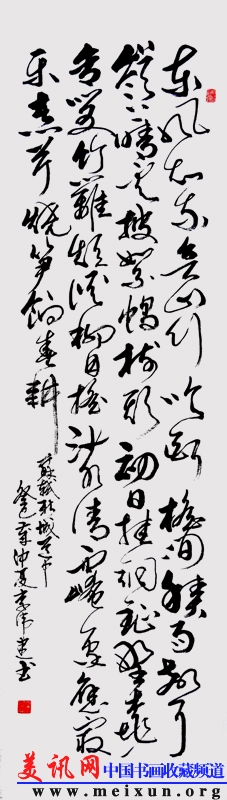 东风知我欲山行吹断檐间积雨声
岭上晴云披絮帽树头初日挂铜钲野桃
含笑竹篱短溪柳自摇沙水清西崦人家应最
乐煮芹烧笋饷春耕
苏轼新城道中
仲夏李伟建书
美讯网 中国书画收藏频道
www.meixun.org